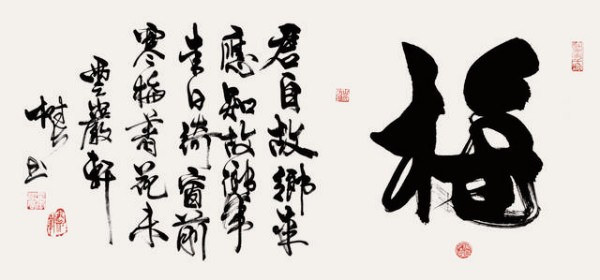 梅
君自故鄉来
應知故鄉事
来日綺窗前
寒梅著花未
巖軒